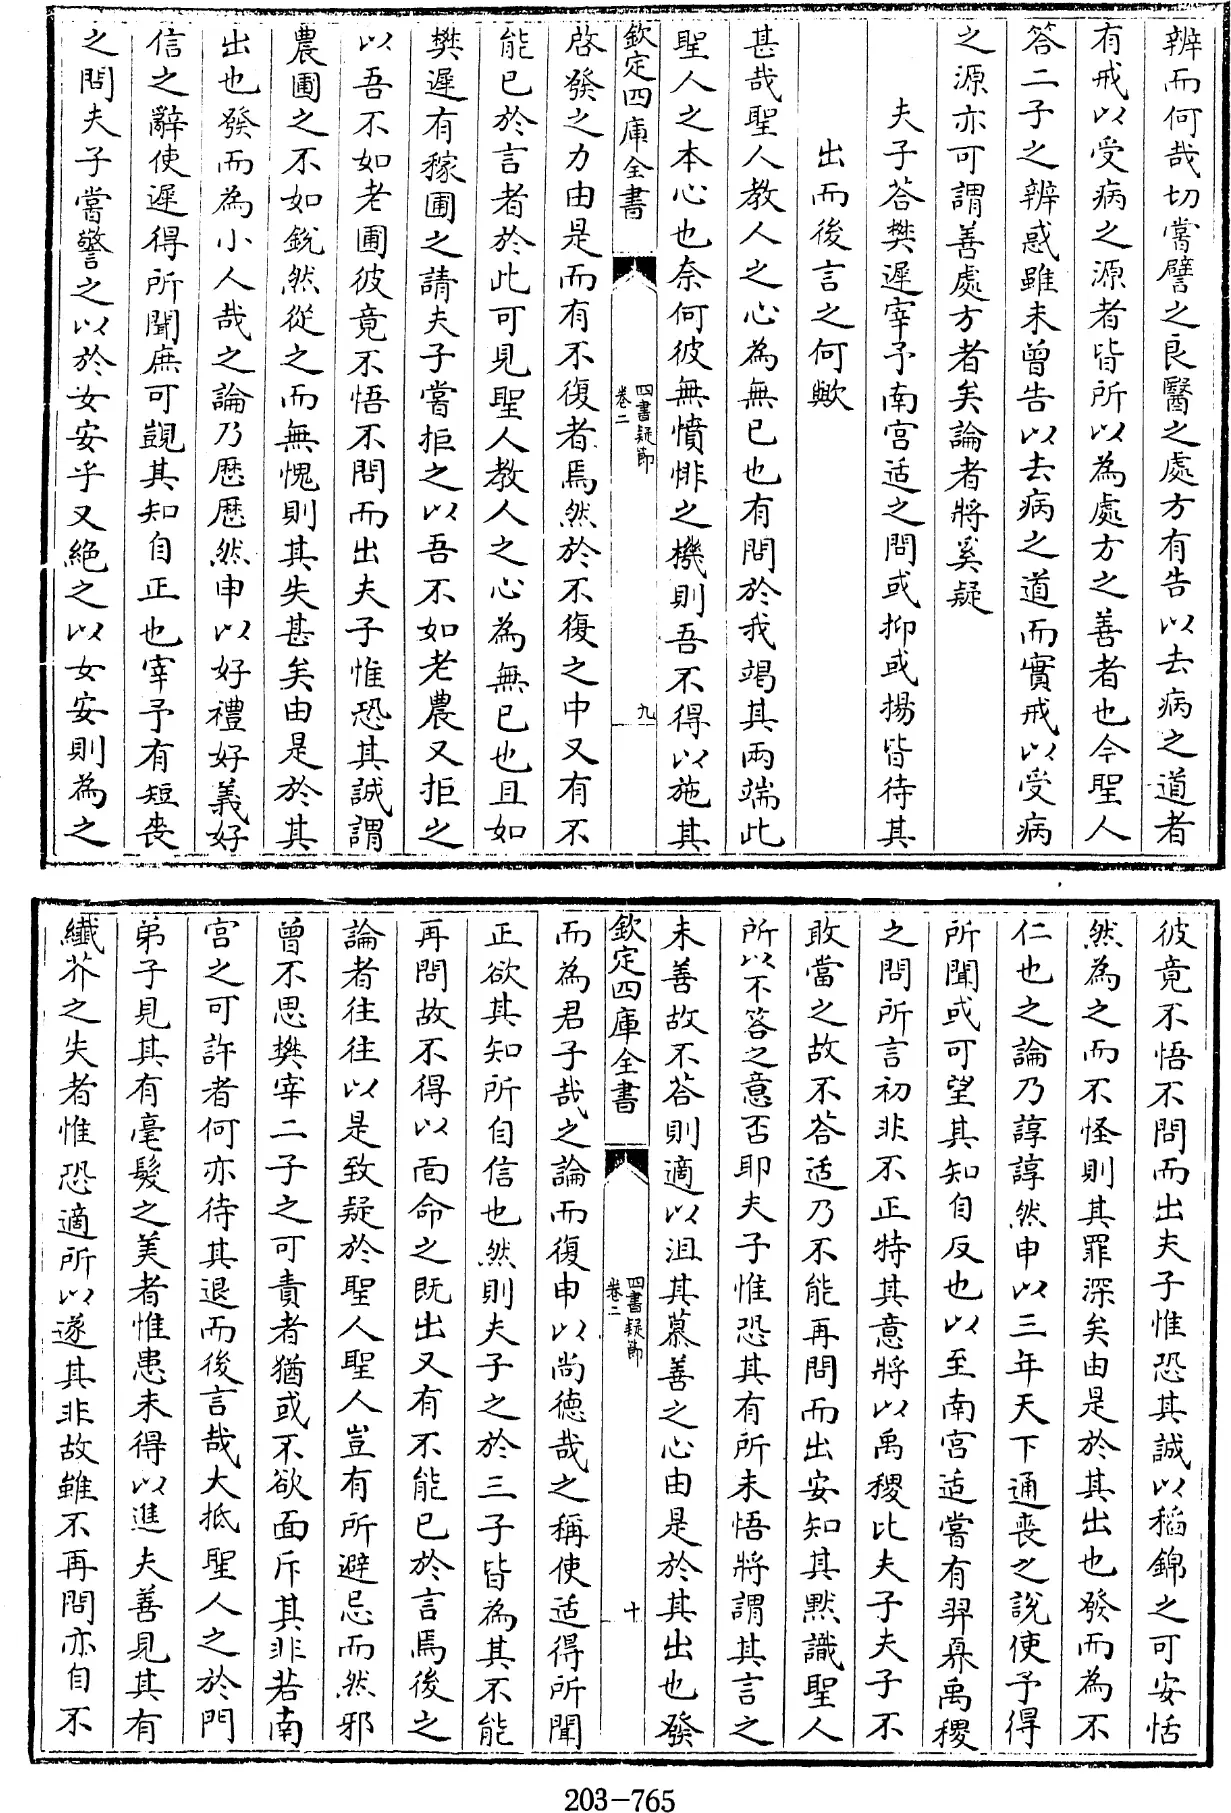 辨而何哉切嘗譬之良醫之處方有告以去病之道者
有戒以受病之源者皆所以為處方之善者也今聖人
答二子之辨惑雖未曾告以去病之道而實戒以受病
之源亦可謂善處方者矣論者將奚疑
夫子答樊遲宰予南宮适之問或抑或揚皆待其
出而後言之何歟
甚哉聖人教人之心為無已也有問於我竭其兩端此
聖人之本心也奈何彼無憤悱之機則吾不得以施其
欽定四庫全書
四書疑節
卷二
九
啓發之力由是而有不復者焉然於不復之中又有不
能已於言者於此可見聖人教人之心為無已也且如
樊遲有稼圃之請夫子嘗拒之以吾不如老農又拒之
以吾不如老圃彼竟不悟不問而出夫子惟恐其誠謂
農圃之不如銳然從之而無愧則其失甚矣由是於其
出也發而為小人哉之論乃歷歷然申以好禮好義好
信之辭使遲得所聞庶可覬其知自正也宰予有短喪
之問夫子嘗警之以於女安乎又絕之以女安則為之
彼竟不悟不問而出夫子惟恐其誠以稻錦之可安恬
然為之而不怪則其罪深矣由是於其出也發而為不
仁也之論乃諄諄然申以三年天下通喪之說使予得
所聞或可望其知自反也以至南宮适嘗有羿奡禹稷
之問所言初非不正特其意將以禹稷比夫子夫子不
敢當之故不答适乃不能再問而出安知其默識聖人
所以不答之意否耶夫子惟恐其有所未悟將謂其言之
未善故不答則適以沮其慕善之心由是於其出也發
欽定四庫全書
四書疑節
卷二
十
而為君子哉之論而復申以尚德哉之稱使适得所聞
正欲其知所自信也然則夫子之於三子皆為其不能
再問故不得以面命之既出又有不能已於言焉後之
論者往往以是致疑於聖人聖人豈有所避忌而然邪
曾不思樊宰二子之可責者猶或不欲面斥其非若南
宮之可許者何亦待其退而後言哉大抵聖人之於門
弟子見其有毫髮之美者惟患未得以進夫善見其有
纖芥之失者惟恐適所以遂其非故雖不再問亦自不
203-765